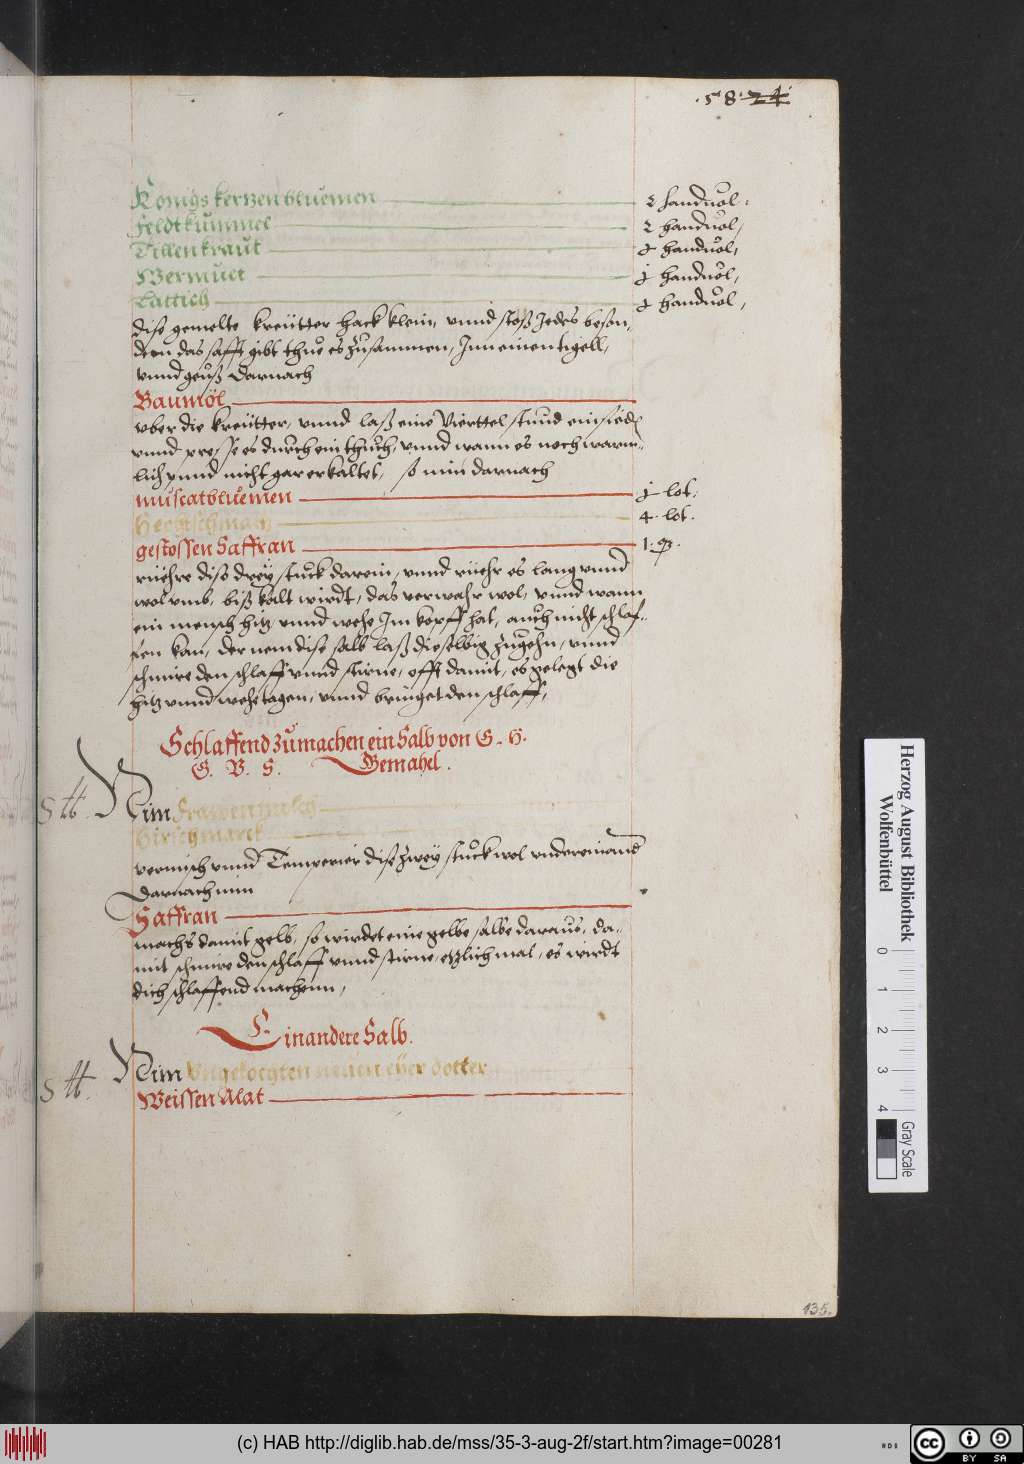 .58. 24
Königs kertzen bluemen 2 handuol,
Feldtkümmel 2 handuol,
Tillenkraut j handuol,
Wermuet j handuol,
Lattich j handuol,
dise gemelte kreütter hack klein, vnnd stoß Jedes beson-
dern das safft gibt thue es zusammen, Inn einen tigell,
vnnd geuß darnach
Baumöl
vber die kreütter, vnnd laß eine Vierttel stund ein sieden
vnnd presse es durch ein thuch, vnnd wann es noch warm-
lich vnnd nicht gar erkaltet, so nim darnach
muscatbluemen j lot.
Hechtschmaltz 4. lot.
gestossen Saffran 1. q.
rüehre dise drey stuck darein, vnnd rüehr es lang vnnd
wol vmb, biß kalt wirdt, das verwahr wol, vnnd wann
ein mensch hitz vnnd wehe Im kopff hat, auch nicht schlaf-
fen kan, der nem dise salb laß dieselbig zugehn, vnnd
schmire den schlaff vnnd stirne, offt damit, es gelegt die
hitz vnnd wehetagen, vnnd bringet den schlaff,
Schlaffend zumachen ein Salb von G. H.
G. V. S. Gemahel.
Nim frawenmilch
Hirschmarck
vermisch vnnd Temperier dise zwey stuck wol vndereinand
Darnach nim
Saffran
machs damit gelb, so wirdet eine gelbe salbe daraus, da-
mit schmire den schlaff vnnd stirne, etzlich mal, es wirdt
dich schlaffend machenn,
Ein andere Salb.
Nim Vngekochten neuen eÿer dotter
Weissen Alat
135.
Herzog August Bibliothek
Wolfenbüttel
0 1 2 3 4
Gray Scale
(c) HAB http://diglib.hab.de/mss/35-3-aug-2f/start.htm?image=00281
cc BY SA